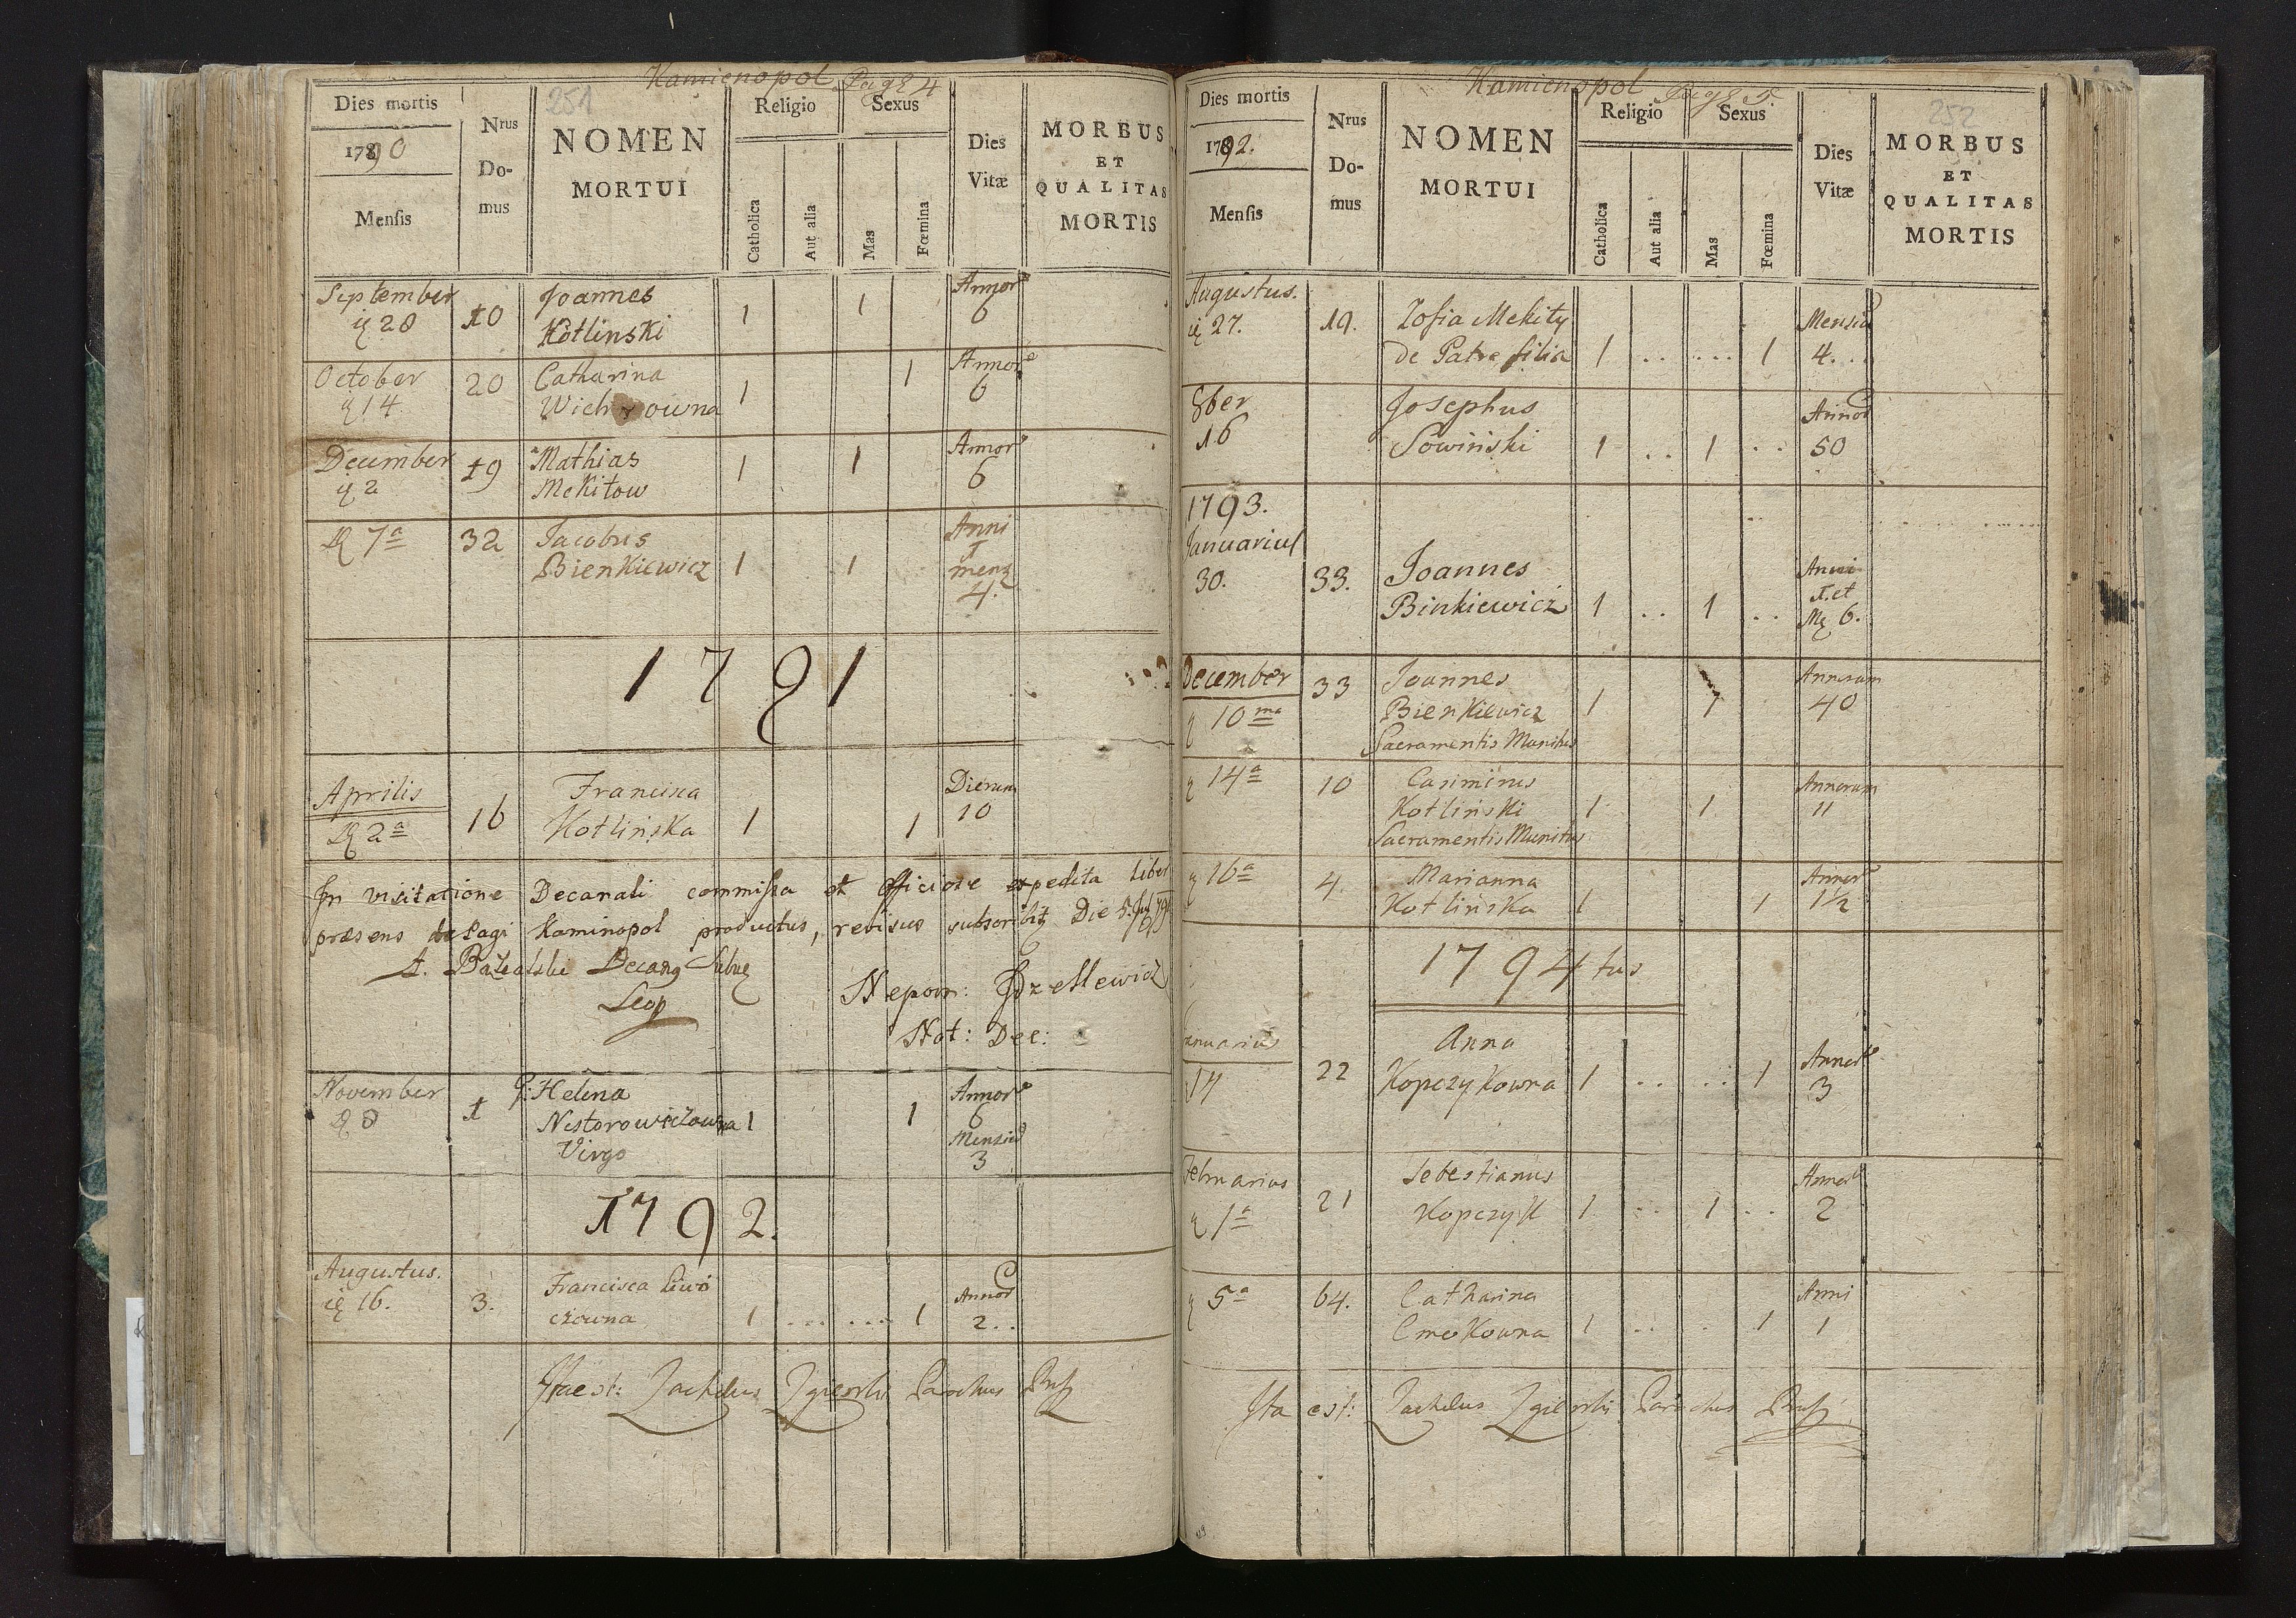 Kamienopol Pag 4
251
Dies mortis
1790
Mensis
Nrus
Do-
mus
NOMEN
MORTUI
Religio
Catholica
Aut alia
Sexus
Mas
Fœmina
Dies
Vitæ
MORBUS
ET
QUALITAS
MORTIS
September Joannes Annor
28 10 Kotlinski 1 1 6
October 20 Catharina 1 1 Annor
14 6
December 19 Mathias 1 1 Annor
2 Mekitow 6
7a 32 Jacobus Anni
Bienkiewicz 1 1 1
menz
4.
1791
Aprilis Francisca Dierum
2a 16 Kotlińska 1 1 10
In visitatione Decanali commissa et officiose expedita liber
præsens pagi Kaminopol productus, revisus subscribit Die 5
Decan
Leop
Nepom:
Not: Dec:
November 1 Helena Annor
8 Nestorowiczowna 1 1 6
Virgo Mensiu
3
1792.
Augustus. Francisca Annor
16. 3. czowna 1 ... ... 1 2..
Ita est: Zgierski Parochus
Kamienopol Pag 5
252
Dies mortis
1792.
Mensis
Nrus
Do-
mus
NOMEN
MORTUI
Religio
Catholica
Aut alia
Sexus
Mas
Fœmina
Dies
Vitæ
MORBUS
ET
QUALITAS
MORTIS
Augustus.
27. 19. Zofia Mekity Mensiu
de Patre filia 1 .. ... 1 4...
8ber Josephus Annor
16 Sowiński 1 .. 1 .. 50
1793.
Januarius
30. 33. Joannes Anni
Binkiewicz 1 .. 1 .. 1. et
6.
December 33 Joannes Annorum
10ma Bienkiewicz 1 1 40
Sacramentis Munitus
14a 10 Casimirus Annorum
Kotliński 1 1 11
Sacramentis Munitus
16a 4. Marianna Annor
Kotlińska 1 1 1½
1794tus
Januarius Anna
14 22 Kopczykowna 1 .. .. 1 Annor
3
Februarius Sebestianus Annor
1a 21 Kopczyk 1 .. 1 .. 2
5a 64. Catharina Anni
Cmokowna 1 .. . 1 1
Ita est: Zgierski Parochus